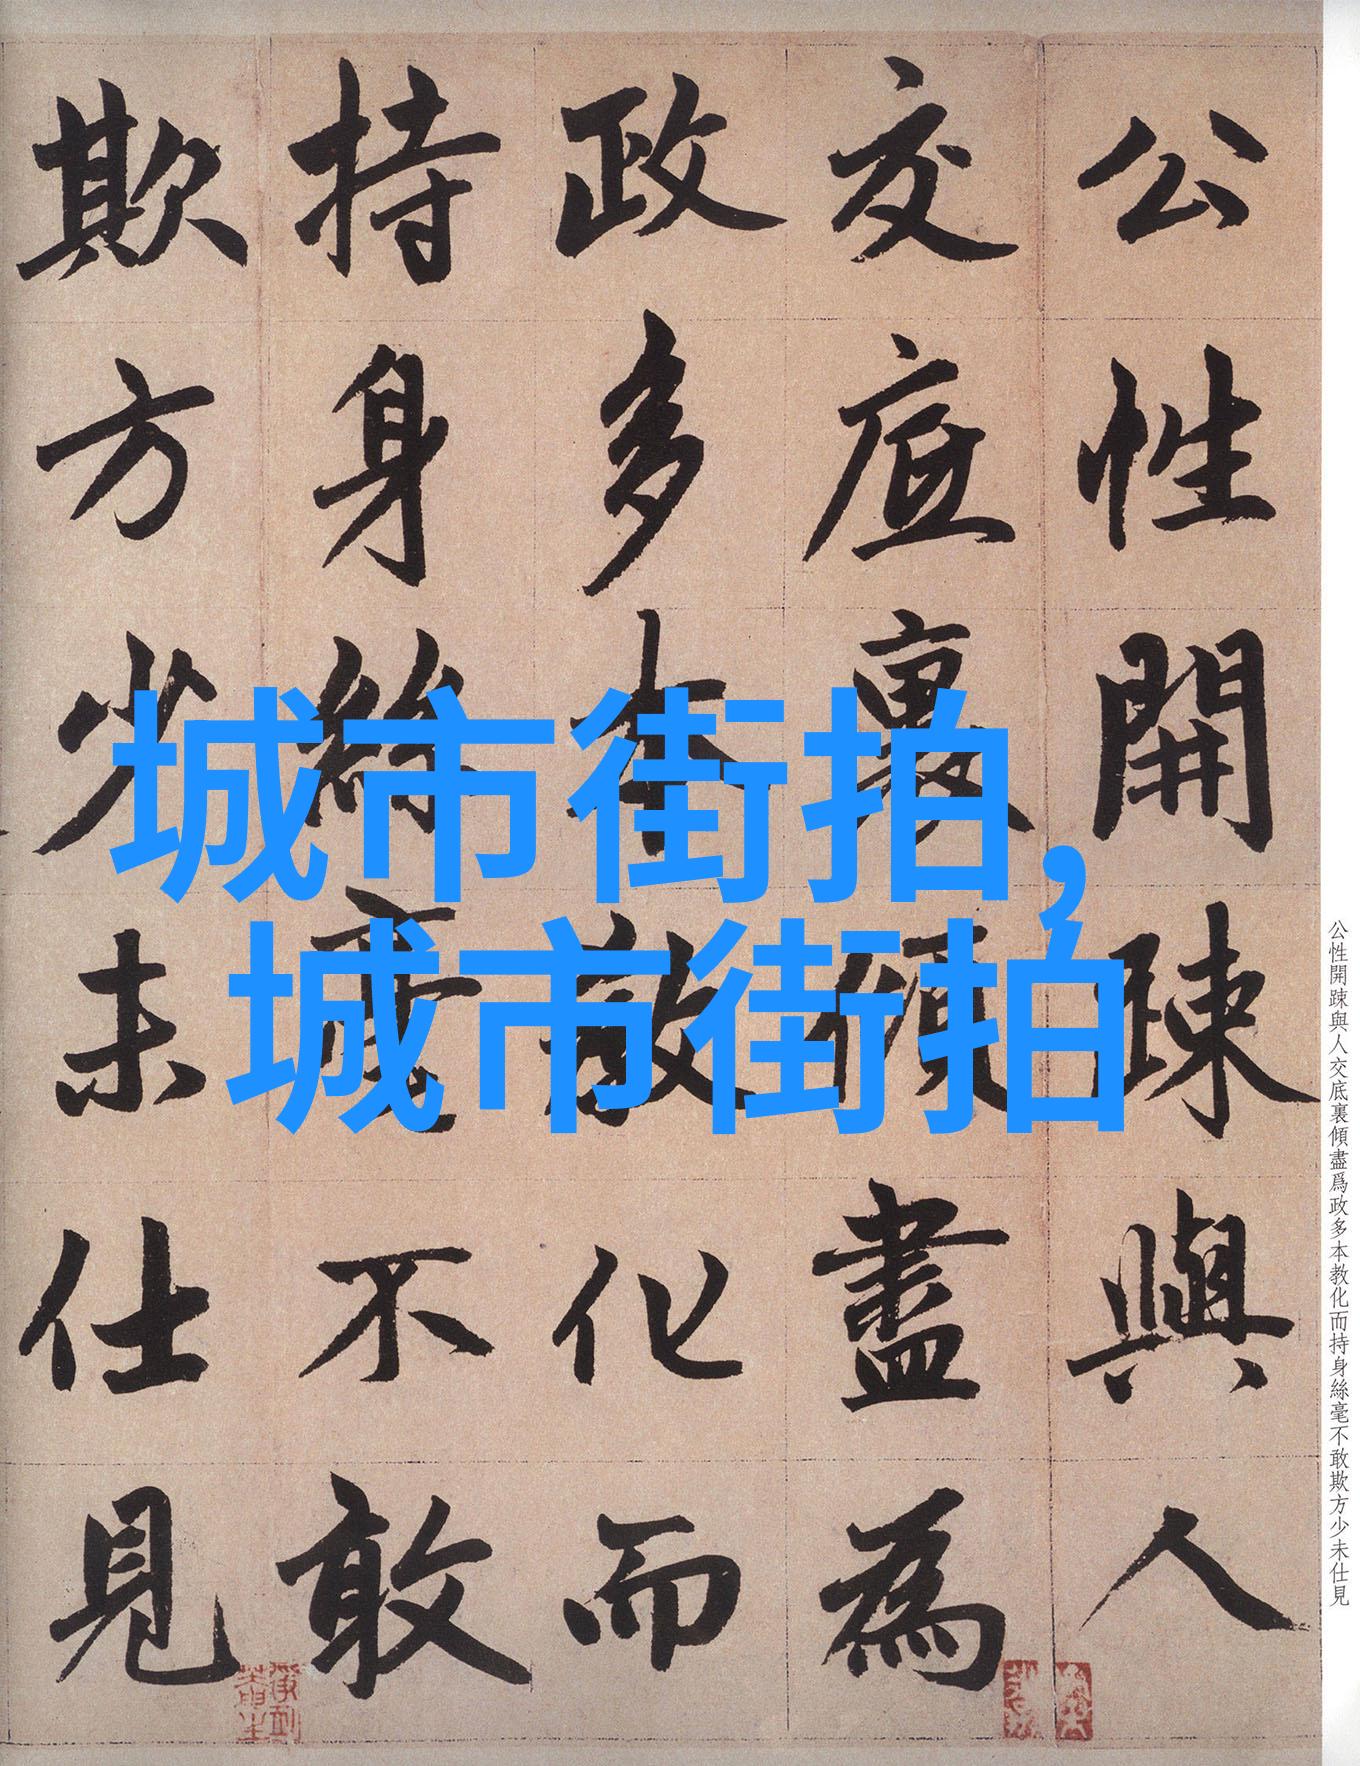 公性開踈與人
交底裏傾盡為
政多本教化而
持身絲毫不敢
欺方少未仕見
城市街拍,
城市街拍
公性開踈與人交底裏傾盡爲政多本教化而持身絲毫不敢欺方少未仕見